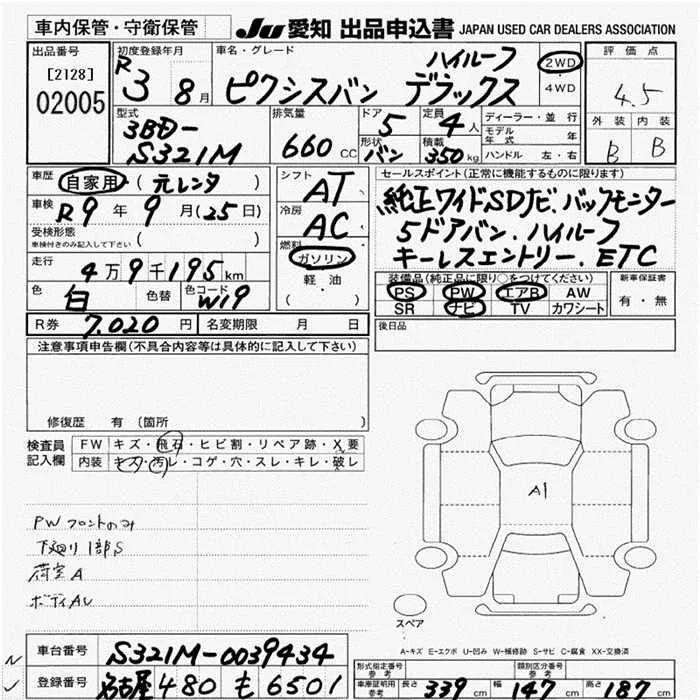 車内保管・守衛保管
JU 愛知 出品申込書 JAPAN USED CAR DEALERS ASSOCIATION
出品番号
[2128]
02005
初度登録年月
R3 8月
車名・グレード
ハイルーフ
ピクシスバン デラックス
2WD
・
4WD
評価点
4.5
外装 内装
B B
型式
3BD-
S321M
排気量
660 CC
ドア
5
形状
バン
定員
4人
積載
350kg
ディーラー・並行
モデル年式 年
ハンドル 左・右
車歴
自家用 (元レンタ)
車検
R9年9月(25日)
受検形態
車検付きのみ記入して下さい ( )
走行
4万9千195km
色
白 色替
色コード
W19
シフト
AT
冷房
AC
燃料
ガソリン
・
軽・油
( )
セールスポイント(正常に機能するものに限ります)
純正ワイドSDナビ、バックモニター
5ドアバン、ハイルーフ
キーレスエントリー、ETC
装備品(純正品に限り○をつけてください)
PS PW エアB AW
SR ナビ TV カワシート
新車保証書
有・無
R券 7,020円
名変期限 月 日
後日品
注意事項申告欄(不具合内容等は具体的に記入して下さい)
修復歴 有〔箇所 〕
検査員
記入欄
FW キズ・飛石・ヒビ割・リペア跡・X要
内装 キズ・汚レ・コゲ・穴・スレ・キレ・破レ
PWフロントのみ
下廻り1部S
荷室A
ボディAU
A1
スペア
A-キズ E-エクボ U-凹み W-補修跡 S-サビ C-腐食 XX-交換済
車台番号 S321M-0039434
登録番号 名古屋 480 も 6501
形式指定番号
参考
類別区分番号
参考
車庫証明用
参考
長さ 339cm 幅 147cm 高さ 187cm